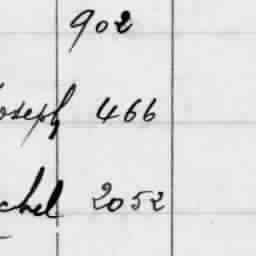 902
oseph 466
chel 2052